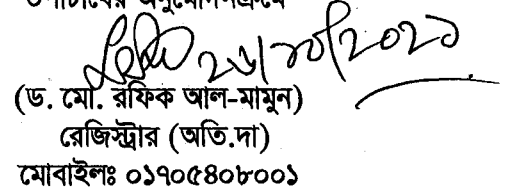 উপাচার্যের অনুমোদনক্রমে
২৬/১০/২০২১
(ড. মো. রফিক আল-মামুন)
রেজিস্ট্রার (অতি.দা)
মোবাইলঃ ০১৭০৫৪০৮০০১